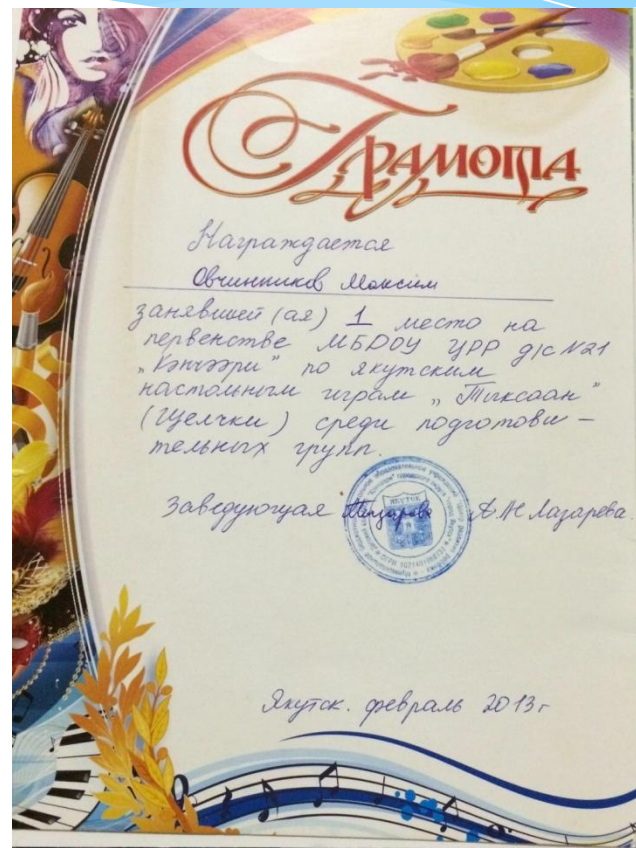 Грамота
Награждается
Овчинников Максим
занявший (ая) 1 место на
первенстве МБДОУ ЦРР д/с №21
„Кэнчээри" по якутским
настольным играм „Тыксаан"
(Щелчки) среди подготови-
тельных групп.
ЯКУТСК
Заведующая Лазарева А.Н. Лазарева.
Якутск. февраль 2013г